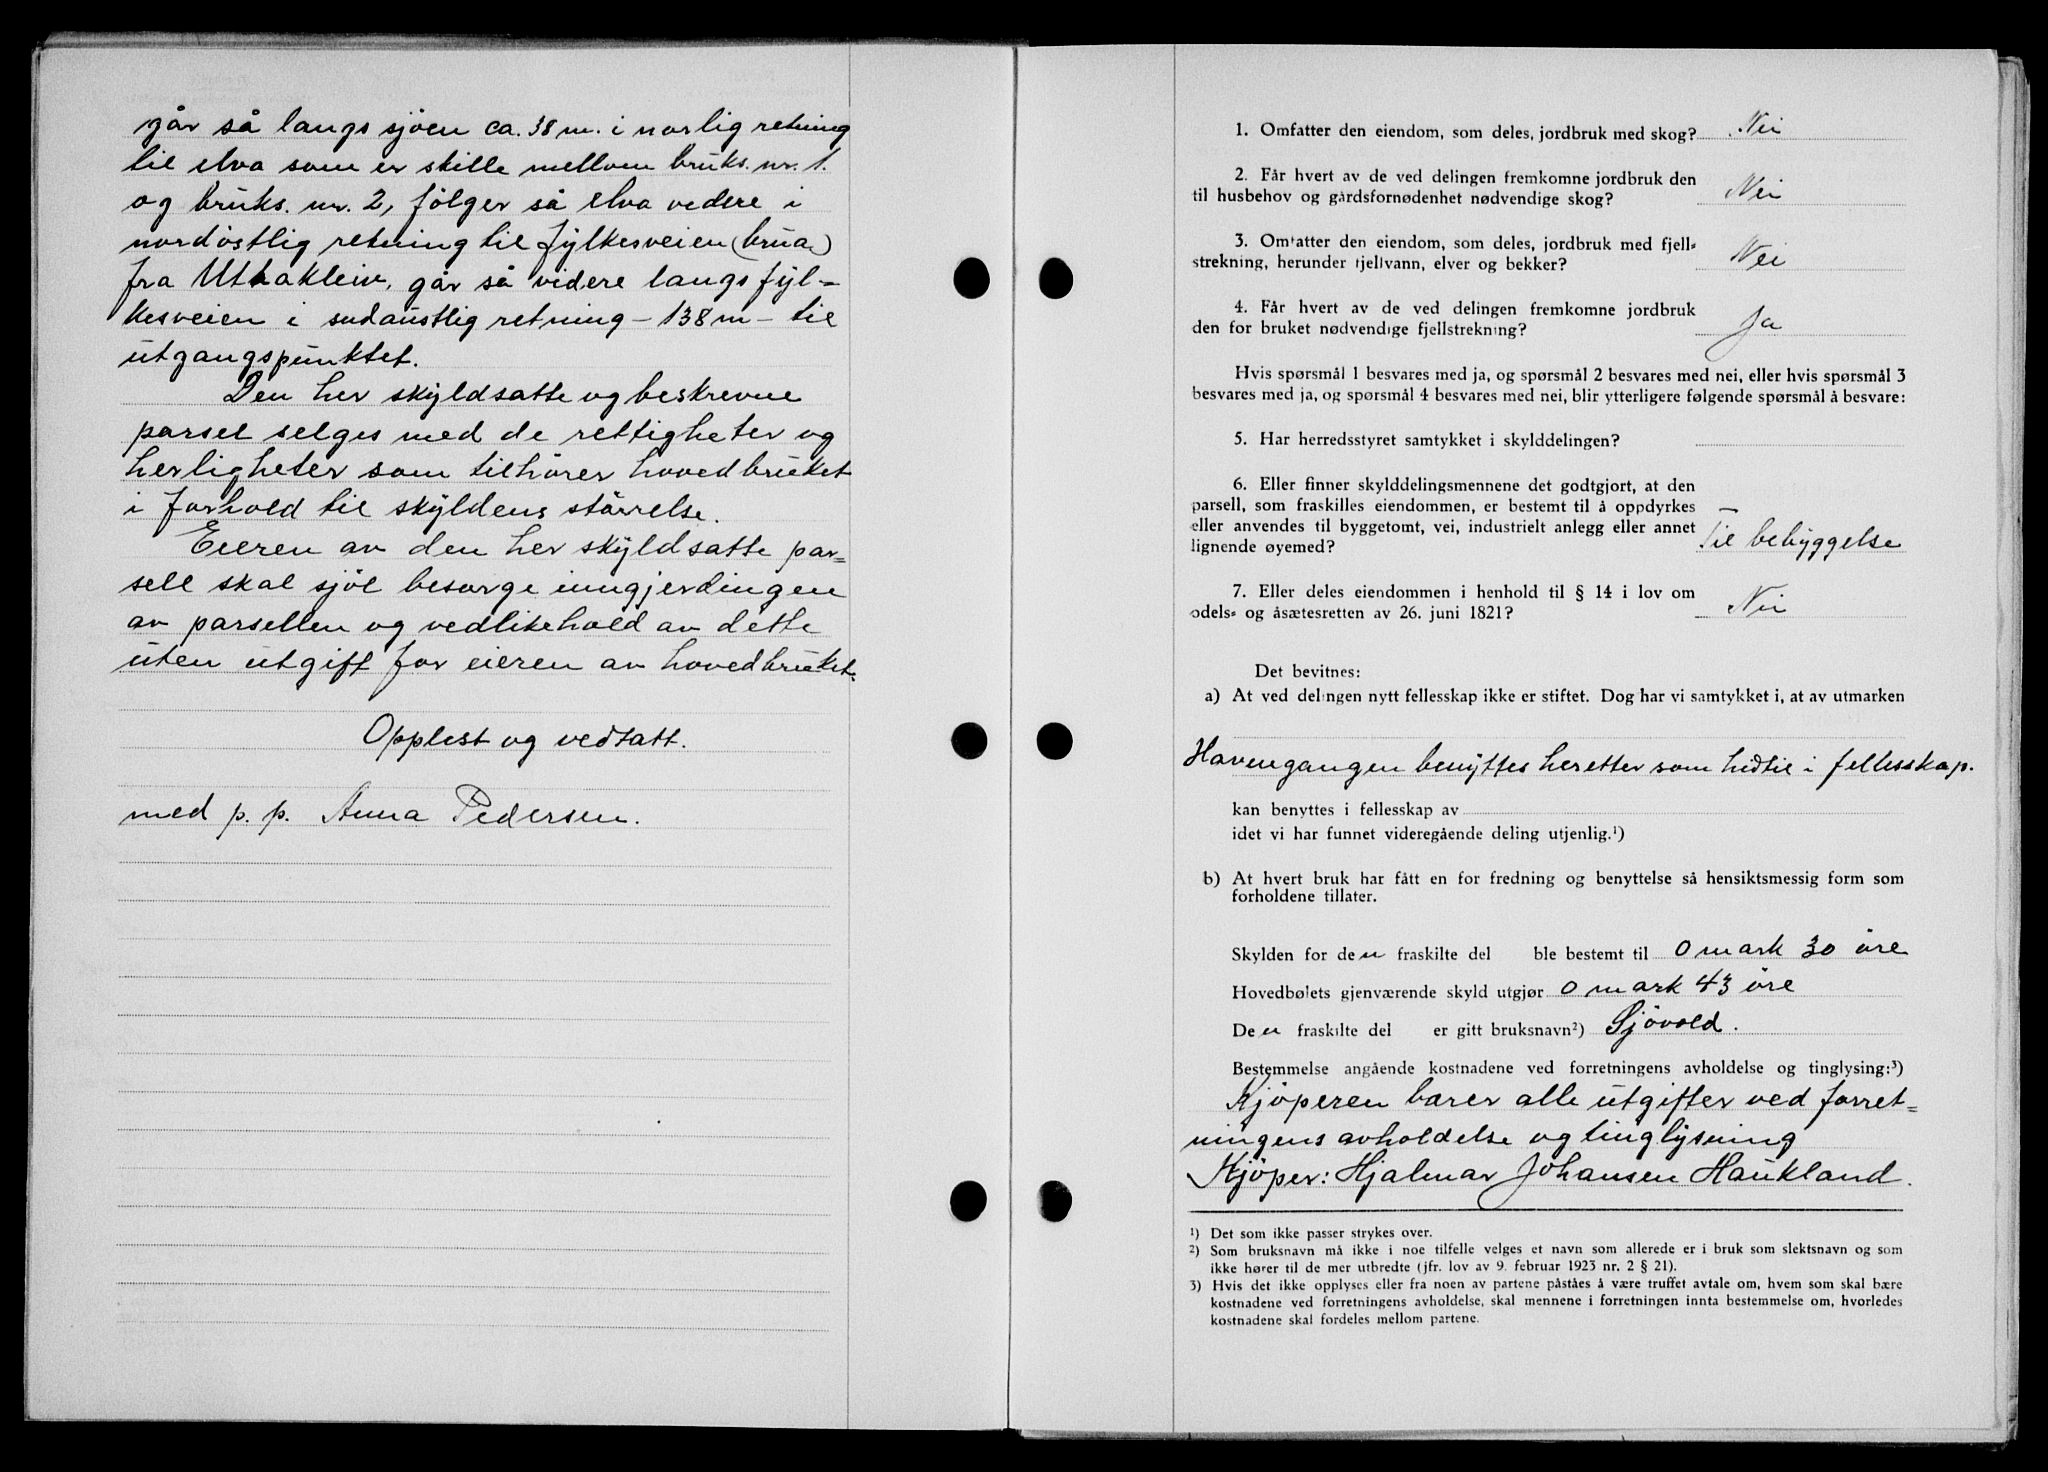 går så langs sjøen ca. 38 m. i norlig retning
til elva som er skille mellom bruks. nr. 1.
og bruks. nr. 2, følger så elva vedere i
nordöstlig retning til fylkesveien (brua)
fra Uttakleiv, går så videre langs fyl-
kesveien i sudaustlig retning - 138 m - til
utgangspunktet.
Den her skyldsatte og beskrevne
parsel selges med de rettigheter og
herligheter som tilhörer hovedbruket
i forhold til skyldens störrelse.
Eieren av den her skyldsatte par=
sell skal sjöl besørge inngjerdingen
av parsellen og vedlikehold av dette
uten utgift for eieren av hovedbruket.
Opplest og vedtatt.
med p. p. Anna Pedersen.
1. Omfatter den eiendom, som deles, jordbruk med skog? Nei
2. Får hvert av de ved delingen fremkomne jordbruk den
til husbehov og gårdsfornødenhet nødvendige skog? Nei
3. Omfatter den eiendom, som deles, jordbruk med fjell=
strekning, herunder fjellvann, elver og bekker? Nei
4. Får hvert av de ved delingen fremkomne jordbruk
den for bruket nødvendige fjellstrekning? Ja
Hvis spørsmål 1 besvares med ja, og spørsmål 2 besvares med nei, eller hvis spørsmål 3
besvares med ja, og spørsmål 4 besvares med nei, blir ytterligere følgende spørsmål å besvare:
5. Har herredsstyret samtykket i skylddelingen?
6. Eller finner skylddelingsmennene det godtgjort, at den
parsell, som fraskilles eiendommen, er bestemt til å oppdyrkes
eller anvendes til byggetomt, vei, industrielt anlegg eller annet
lignende øyemed? Til bebyggelse
7. Eller deles eiendommen i henhold til § 14 i lov om
odels= og åsætesretten av 26. juni 1821? Nei
Det bevitnes:
a) At ved delingen nytt fellesskap ikke er stiftet. Dog har vi samtykket i, at av utmarken
Havengangen benyttes heretter som hidtil i fellesskap.
kan benyttes i fellesskap av
idet vi har funnet videregående deling utjenlig.¹)
b) At hvert bruk har fått en for fredning og benyttelse så hensiktsmessig form som
forholdene tillater.
Skylden for den fraskilte del ble bestemt til 0 mark 30 öre
Hovedbølets gjenværende skyld utgjør 0 mark 43 öre
Den fraskilte del er gitt bruksnavn²) Sjövold.
Bestemmelse angående kostnadene ved forretningens avholdelse og tinglysing:³)
Kjöperen bærer alle utgifter ved forret=
ningens avholdelse og tinglysning
Kjöper: Hjalmar Johansen Haukland.
¹) Det som ikke passer strykes over.
²) Som bruksnavn må ikke i noe tilfelle velges et navn som allerede er i bruk som slektsnavn og som
ikke hører til de mer utbredte (jfr. lov av 9. februar 1923 nr. 2 § 21).
3) Hvis det ikke opplyses eller fra noen av partene påståes å være truffet avtale om, hvem som skal bære
kostnadene ved forretningens avholdelse, skal mennene i forretningen innta bestemmelse om, hvorledes
kostnadene skal fordeles mellom partene.